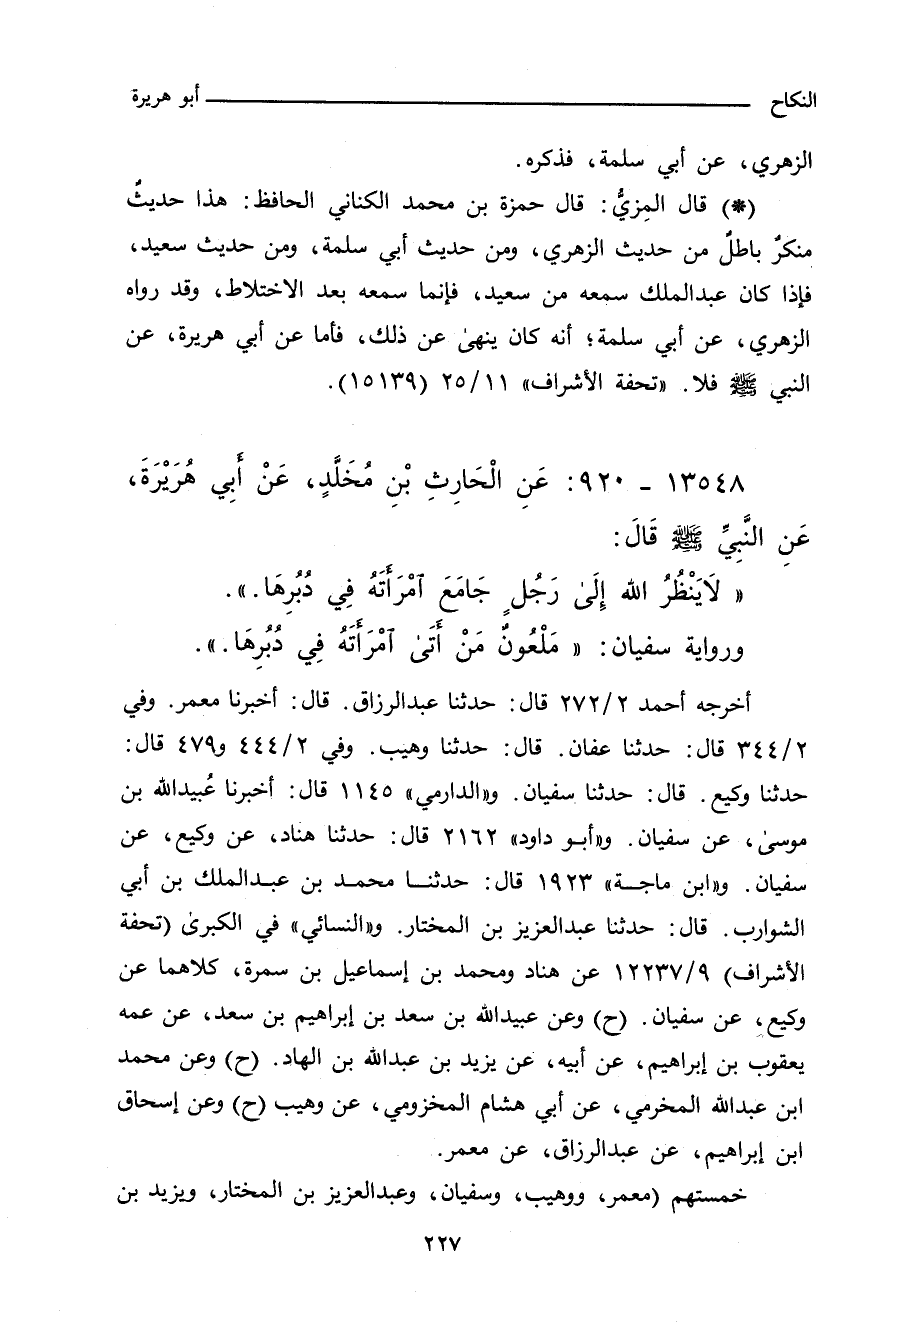 النكاح ـــــــــــــــ أبو هريرة
الزهري، عن أبي سلمة، فذكره.
(*) قال المِزيُّ: قال حمزة بن محمد الكناني الحافظ: هذا حديثٌ
منكرٌ باطلٌ من حديث الزهري، ومن حديث أبي سلمة، ومن حديث سعيد،
فإذا كان عبدالملك سمعه من سعيد، فإنما سمعه بعد الاختلاط، وقد رواه
الزهري، عن أبي سلمة؛ أنه كان ينهىٰ عن ذلك، فأما عن أبي هريرة، عن
النبي ﷺ فلا. «تحفة الأشراف» ١١/ ٢٥ (١٥١٣٩).
١٣٥٤٨ ـ ٩٢٠: عَنِ الْحَارِثِ بْنِ مُخَلَّدٍ، عَنْ أَبِي هُرَيْرَةَ،
عَنِ النَّبِيِّ ﷺ قَالَ:
« لَايَنْظُرُ الله إِلَىٰ رَجُلٍ جَامَعَ ٱمْرَأَتَهُ فِي دُبُرِهَا.».
ورواية سفيان: « مَلْعُونٌ مَنْ أَتَىٰ ٱمْرَأَتَهُ فِي دُبُرِهَا.».
أخرجه أحمد ٢/ ٢٧٢ قال: حدثنا عبدالرزاق. قال: أخبرنا معمر. وفي
٢/ ٣٤٤ قال: حدثنا عفان. قال: حدثنا وهيب. وفي ٢/ ٤٤٤ و٤٧٩ قال:
حدثنا وكيع. قال: حدثنا سفيان. و«الدارمي» ١١٤٥ قال: أخبرنا عُبيدالله بن
موسىٰ، عن سفيان. و«أبو داود» ٢١٦٢ قال: حدثنا هناد، عن وكيع، عن
سفيان. و«ابن ماجة» ١٩٢٣ قال: حدثنا محمد بن عبدالملك بن أبي
الشوارب. قال: حدثنا عبدالعزيز بن المختار. و«النسائي» في الكبرىٰ (تحفة
الأشراف) ٩/ ١٢٢٣٧ عن هناد ومحمد بن إسماعيل بن سمرة، كلاهما عن
وكيع، عن سفيان. (ح) وعن عبيدالله بن سعد بن إبراهيم بن سعد، عن عمه
يعقوب بن إبراهيم، عن أبيه، عن يزيد بن عبدالله بن الهاد. (ح) وعن محمد
ابن عبدالله المخرمي، عن أبي هشام المخزومي، عن وهيب (ح) وعن إسحاق
ابن إبراهيم، عن عبدالرزاق، عن معمر.
خمستهم (معمر، ووهيب، وسفيان، وعبدالعزيز بن المختار، ويزيد بن
٢٢٧